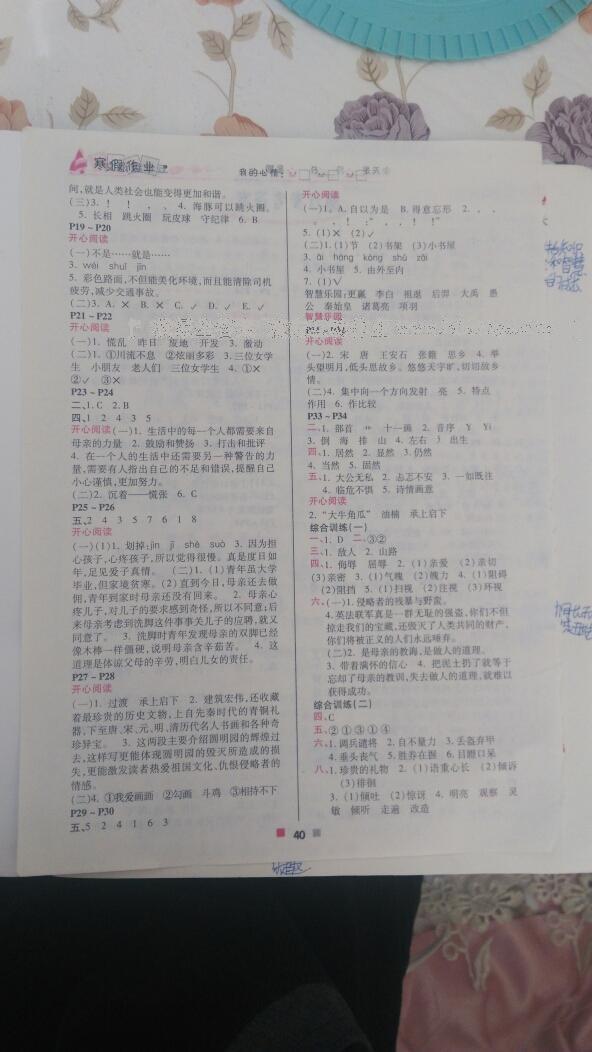 寒假作业
我的心情：
间,就是人类社会也能变得更加和谐。
(三)3. ！ ！ 、 、 4. 海豚可以跳火圈。
5. 长相 跳火圈 玩皮球 守纪律 6. B
P19～P20
开心阅读
(一)不是……就是……
3. wéi shuǐ jìn
5. 彩色路面,不但能美化环境,而且能清除司机
疲劳,减少交通事故。
(二)3. A. × B. × C. ✓ D. ✓ E. ✓
P21～P22
开心阅读
(一)1. 慌乱 昨日 陡地 开发 3. 激动
(二)1. ①川流不息 ②炫丽多彩 3. 三位女学
生 小朋友 老人们 三位女学生 4. ①×
②✓ ③×
P23～P24
二、1. C 2. B
四、1 2 4 3 5
开心阅读(一)1. 生活中的每一个人都需要来自
母亲的力量 2. 鼓励和赞扬 3. 打击和批评
4. 在一个人的生活中还需要另一种警告的力
量,需要有人指出自己的不足和错误,提醒自己
小心谨慎,更加努力。
(二)2. 沉着——慌张 6. C
P25～P26
五、2 4 3 5 7 6 1 8
开心阅读
(一)(1)1. 划掉:jīn jǐ shè suò 3. 因为担
心孩子,心疼孩子,所以觉得很慢。真是度日如
年,足见爱子真情。 (二)1. (1)青年虽大学
毕业,但家境贫寒。(2)直到今日,母亲还去做
佣,青年到家时母亲还没有回来。 2. 母亲心
疼儿子,对儿子的要求感到奇怪,所以不同意;后
来母亲考虑到洗脚这件事事关儿子的应聘,就又
同意了。 3. 洗脚时青年发现母亲的双脚已经
像木棒一样僵硬,说明母亲含辛茹苦。 4. 这
道理是体谅父母的辛劳,明白儿女的责任。
P27～P28
开心阅读
(一)1. 过渡 承上启下 2. 建筑宏伟,还收藏
着最珍贵的历史文物,上自先秦时代的青铜礼
器,下至唐、宋、元、明、清历代名人书画和各种奇
珍异宝。 3. 这两段主要介绍圆明园的辉煌过
去,这样写更能体现圆明园的毁灭所造成的损
失,更能激发读者热爱祖国文化、仇恨侵略者的
情感。
(二)4. ①我爱画画 ②勾画 斗鸡 ③相持不下
P29～P30
五、5 2 4 1 6 3
开心阅读
(一)1. A. 自以为是 B. 得意忘形 2. ， 。
5. (1)× (2)✓
(二)1. (1)节 (2)书架 (3)小书屋
3. āi hàng kòng shǔ zāi
4. 小书屋 5. 由外至内
7. (1)✓
智慧乐园:更羸 李白 祖逖 后羿 大禹 愚
公 秦始皇 诸葛亮 项羽
智慧乐园
开心阅读
(一)2. 宋 唐 王安石 张籍 思乡 4. 举
头望明月,低头思故乡。悠悠天宇旷,切切故乡
情。
(二)4. 集中向一个方向发射 亮 5. 特点
作用 6. 作比较
P33～P34
二、1. 部首 艹 十一画 2. 音序 Y Yi
3. 倒 海 排 山 4. 左右 5. 出生
四、1. 居然 2. 显然 3. 仍然
4. 当然 5. 固然
五、1. 大公无私 2. 忐忑不安 3. 一如既往
4. 临危不惧 5. 诗情画意
开心阅读
2. “大牛角瓜” 油楠 承上启下
综合训练(一)
一、1. D 二、③②
三、1. 敌人 2. 山路
四、1. 侮辱 屈辱 2. (1)亲爱 (2)亲切
(3)亲密 3. (1)气魄 (2)魄力 4. (1)阻碍
(2)阻挡 5. (1)扫视 (2)注视 (3)环视
六、(一)1. 侵略者的残暴与野蛮。
4. 英法联军真是一群无耻的强盗,你们不但
掠走我们的宝藏,还毁灭了人类共同的财产,
你们将被正义的人们永远唾弃。
(二)2. 是母亲的教诲,是做人的道理。
3. 带着满怀的信心 4. 把民土扔了就等于
忘却了母亲的教训,失去做人的道理,就难以
获得成功。
综合训练(二)
四、C
五、②①③①④
六、1. 调兵遣将 2. 自不量力 3. 丢盔弃甲
4. 垂头丧气 5. 胜券在握 6. 目瞪口呆
八、1. 珍贵的礼物 2. (1)语重心长 (2)倾诉
(3)徘徊
3. (1)倾吐 (2)惊讶 4. 明亮 观察 灵
敏 倾听 走遍 改造
40